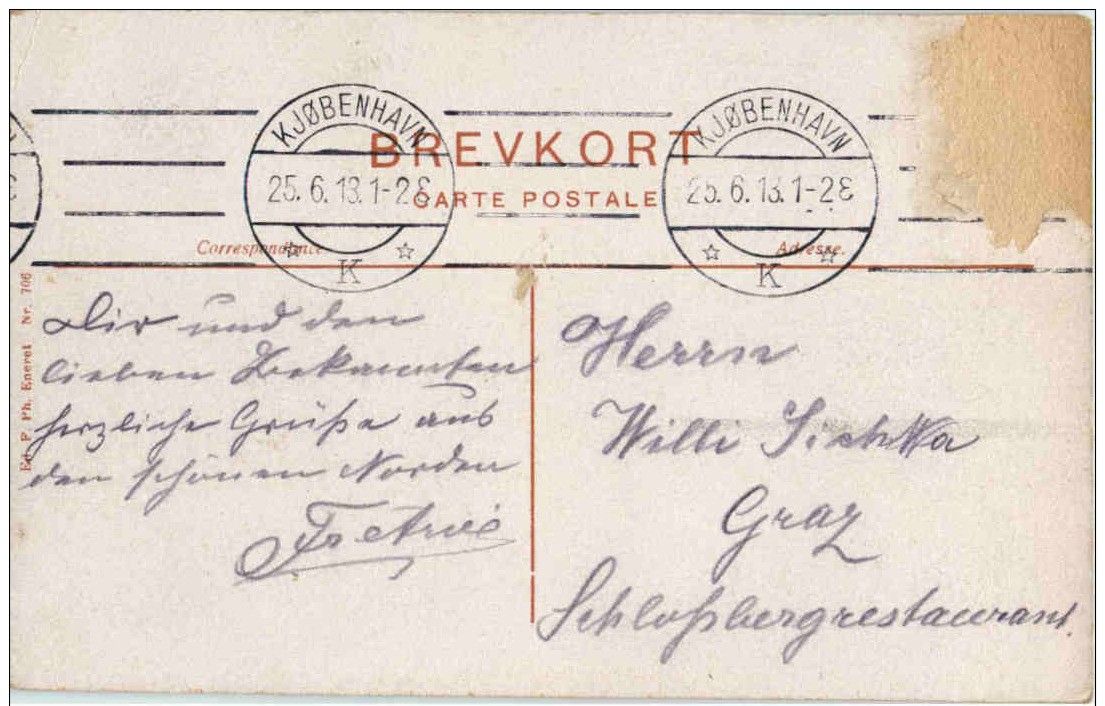 KJØBENHAVN
25. 6. 13. 1-2 E
K
KJØBENHAVN
25. 6. 13. 1-2 E
K
BREVKORT
CARTE POSTALE
Correspondance.
Adresse.
Ed. F. Ph. Eneret Nr. 706
Dir und den
lieben Bekannten
herzliche Grüße aus
den schönen Norden
Herrn
Willi
Graz
Schloßbergrestaurant.